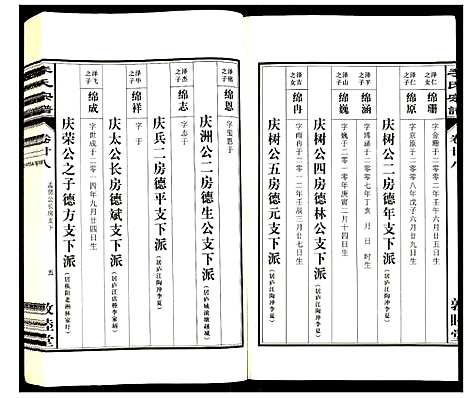 李氏宗谱
卷廿八
敦睦堂
泽仁之子 绵珊
字金珊于二〇〇二年壬午六月廿五日生
泽仁之子 绵原
字京原于二〇〇八年戊子六月廿九日生
庆树公二房德年支下派
泽平之子 绵涵
字于二〇〇七年丁亥 月 日 时生
泽山之子 绵巍
字巍于二〇一〇年庚寅二月十四日生
庆树公四房德林公支下派（居庐江陶冲李夏）
泽吉之子 绵冉
字雨冉于二〇一二年壬辰三月廿七日生
庆树公五房德元支下派（居庐江陶冲李夏）
之子 绵恩
字玺恩于
庆洲公二房德生公支下派
泽杰之子 绵志
字志于
庆兵二房德平支下派（居庐江陶冲李夏）
泽华之子 绵祥
字于
庆太公长房德斌支下派
泽飞之子 绵成
字世成于二〇一四年九月廿四日生
庆荣公之子德方支下派
李氏宗谱
卷廿八
孟贤公长房支下
五
敦睦堂